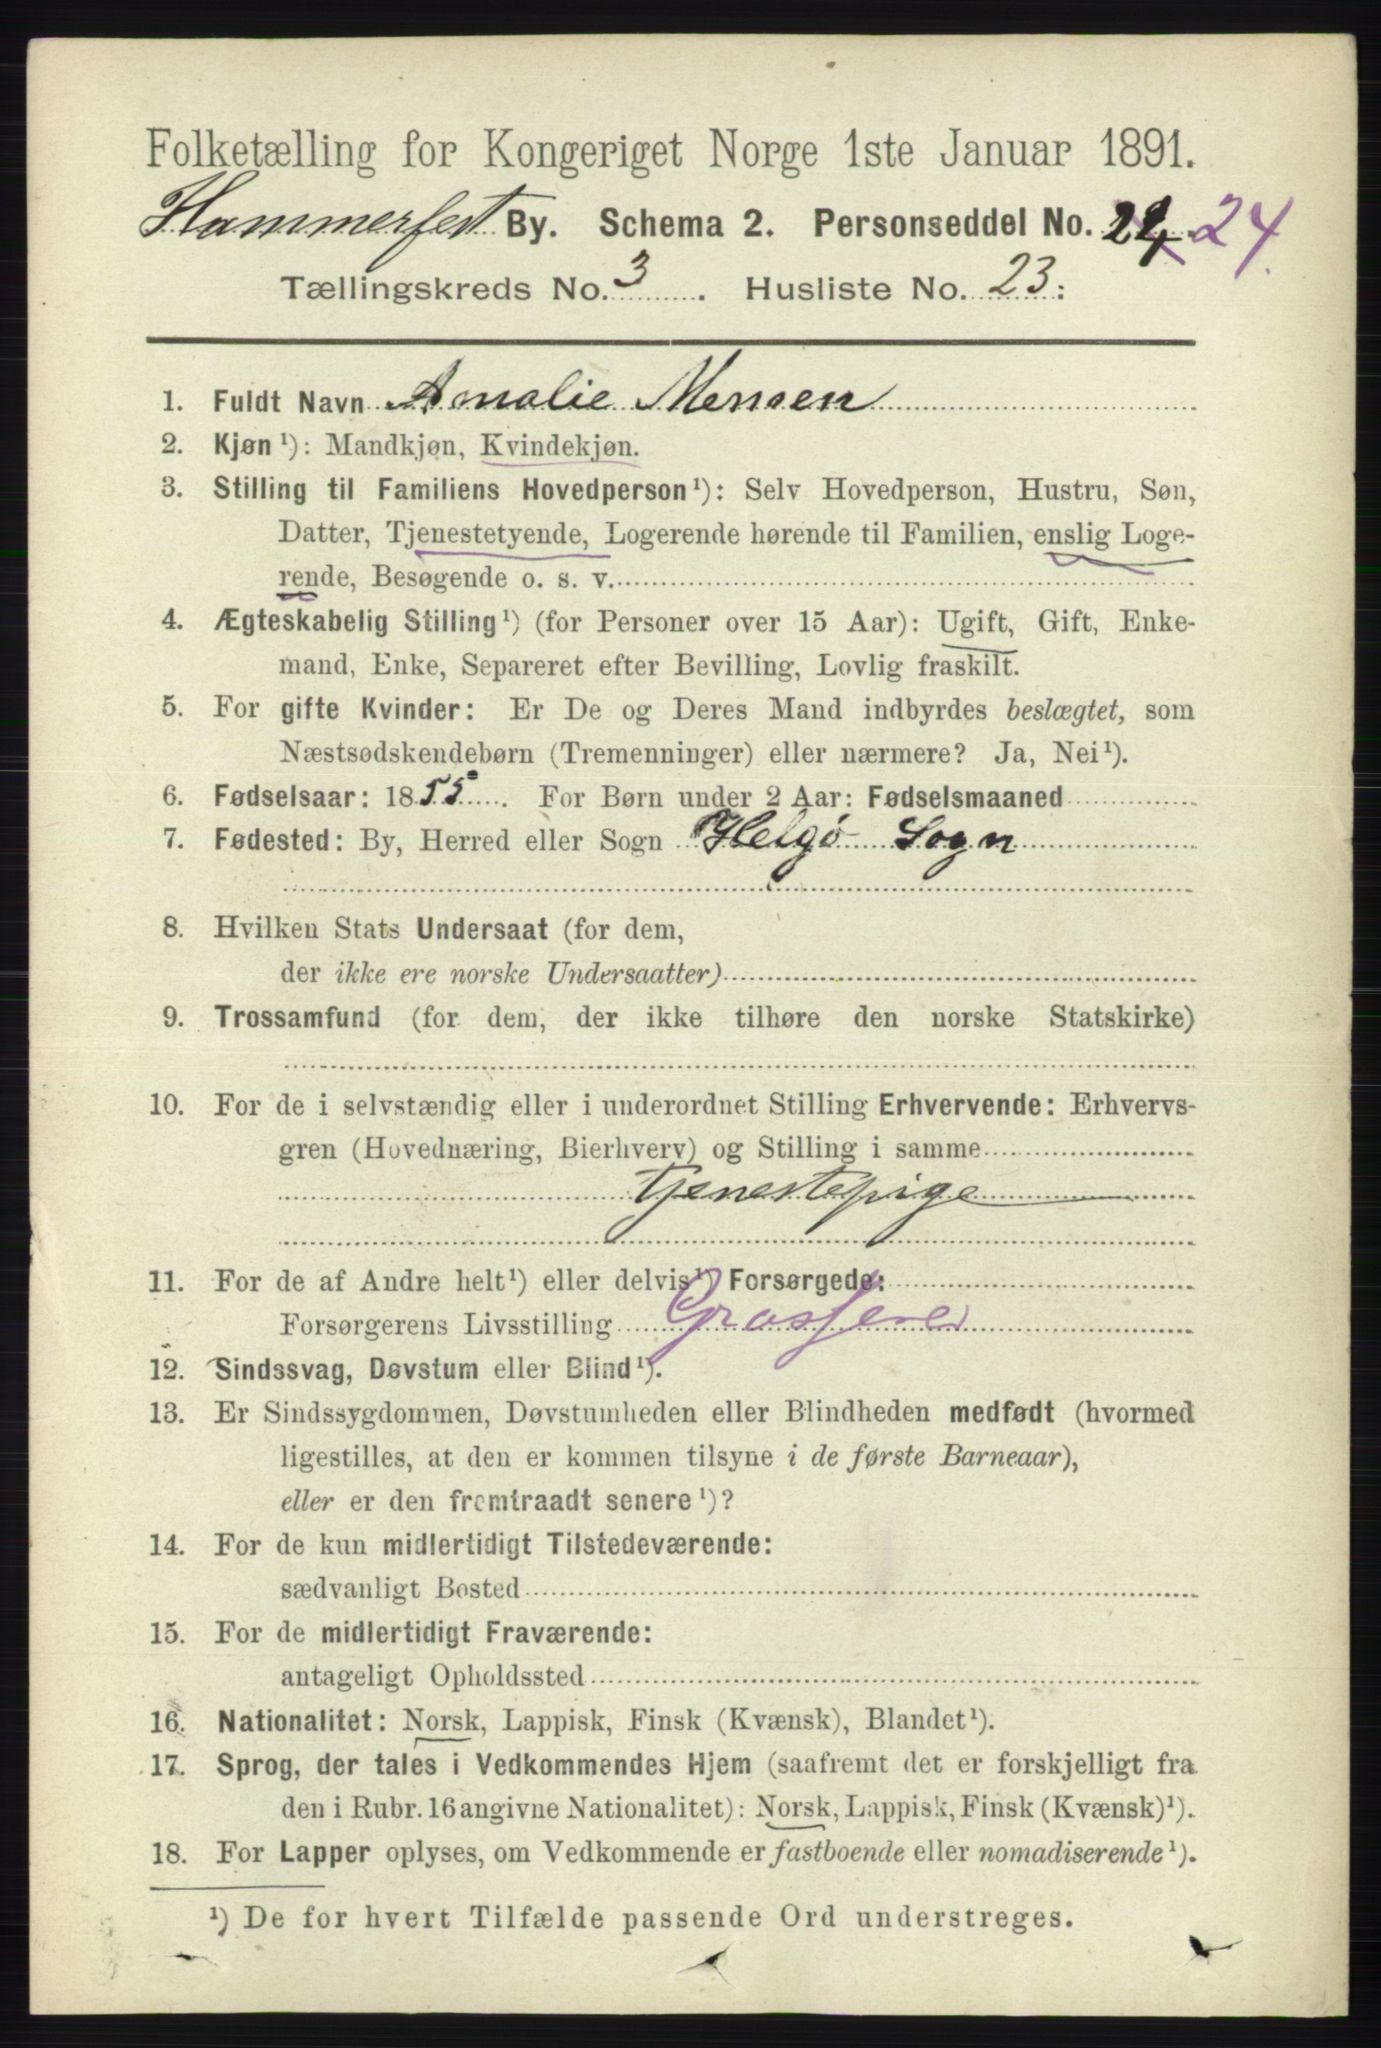 Folketælling for Kongeriget Norge 1ste Januar 1891.
Hammerfest By. Schema 2. Personseddel No. 24. 24.
Tællingskreds No. 3. Husliste No. 23:
1. Fuldt Navn Amalie Mensen
2. Kjøn¹): Mandkjøn, Kvindekjøn.
3. Stilling til Familiens Hovedperson¹): Selv Hovedperson, Hustru, Søn,
Datter, Tjenestetyende, Logerende hørende til Familien, enslig Loge-
rende, Besøgende o. s. v.
4. Ægteskabelig Stilling¹) (for Personer over 15 Aar): Ugift, Gift, Enke-
mand, Enke, Separeret efter Bevilling, Lovlig fraskilt.
5. For gifte Kvinder: Er De og Deres Mand indbyrdes beslægtet, som
Næstsødskendebørn (Tremenninger) eller nærmere? Ja, Nei¹).
6. Fødselsaar: 1855. For Børn under 2 Aar: Fødselsmaaned
7. Fødested: By, Herred eller Sogn Helgø Sogn
8. Hvilken Stats Undersaat (for dem,
der ikke ere norske Undersaatter)
9. Trossamfund (for dem, der ikke tilhøre den norske Statskirke)
10. For de i selvstændig eller i underordnet Stilling Erhvervende: Erhvervs-
gren (Hovednæring, Bierhverv) og Stilling i samme
Tjenestepige
11. For de af Andre helt¹) eller delvis¹) Forsørgede:
Forsørgerens Livsstilling Grosserer
12. Sindssvag, Døvstum eller Blind¹).
13. Er Sindssygdommen, Døvstumheden eller Blindheden medfødt (hvormed
ligestilles, at den er kommen tilsyne i de første Barneaar),
eller er den fremtraadt senere¹)?
14. For de kun midlertidigt Tilstedeværende:
sædvanligt Bosted
15. For de midlertidigt Fraværende:
antageligt Opholdssted
16. Nationalitet: Norsk, Lappisk, Finsk (Kvænsk), Blandet¹).
17. Sprog, der tales i Vedkommendes Hjem (saafremt det er forskjelligt fra
den i Rubr. 16 angivne Nationalitet): Norsk, Lappisk, Finsk (Kvænsk)¹).
18. For Lapper oplyses, om Vedkommende er fastboende eller nomadiserende¹).
¹) De for hvert Tilfælde passende Ord understreges.